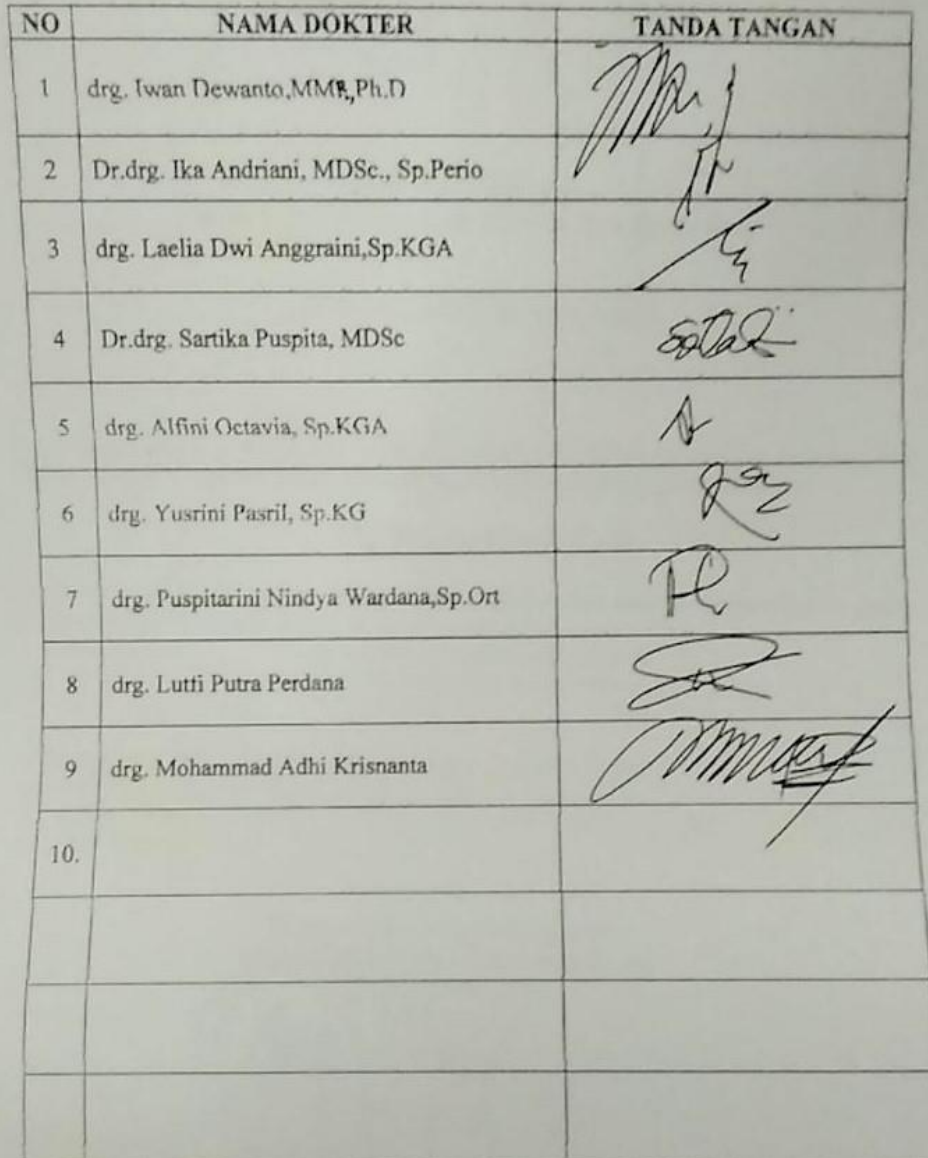 NO NAMA DOKTER TANDA TANGAN
1 drg. Iwan Dewanto,MMR,Ph.D
2 Dr.drg. Ika Andriani, MDSc., Sp.Perio
3 drg. Laelia Dwi Anggraini,Sp.KGA
4 Dr.drg. Sartika Puspita, MDSc
5 drg. Alfini Octavia, Sp.KGA
6 drg. Yusrini Pasril, Sp.KG
7 drg. Puspitarini Nindya Wardana,Sp.Ort
8 drg. Lutfi Putra Perdana
9 drg. Mohammad Adhi Krisnanta
10.